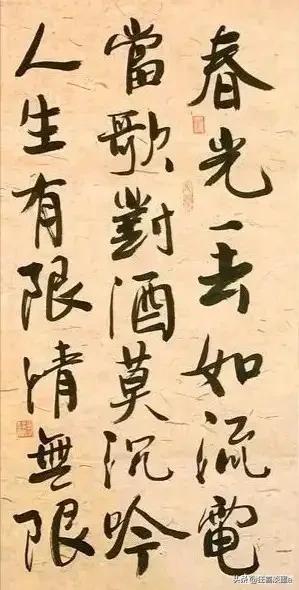 春光一去如流電
當歌對酒莫沉吟
人生有限情無限